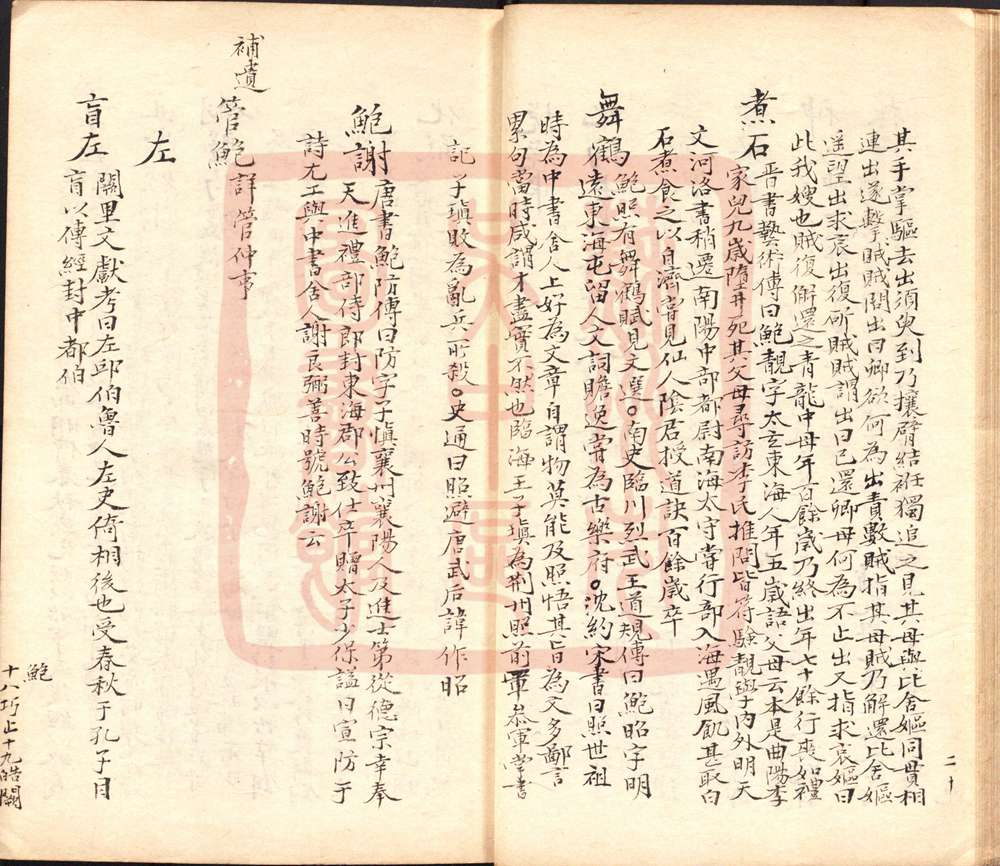 其手掌驅去出須臾到乃攘臂結衽獨追之見其母與比舍嫗同貫相
連出遂擊賊賊問出曰卿欲何為出責數賊指其母賊乃解還比舍嫗
遥望出求哀出復斫賊賊謂出曰已還卿母何為不止出又指求哀嫗曰
此我嫂也賊復解還之青龍中母年百餘歲乃終出年七十餘行喪如禮
煮石
晋書藝術傳曰鮑靚字太玄東海人年五歲語父母云本是曲陽李
家兒九歲墮井死其父母尋訪李氏推問皆符驗靚學内外明天
文河洛書稍遷南陽中部都尉南海太守嘗行部入海遇風飢甚取白
石煮食之以自濟嘗見仙人陰君授道訣百餘歲卒
舞鶴
鮑照有舞鶴賦見文選○南史臨川烈武王道規傳曰鮑昭字明
遠東海屯留人文詞贍逸嘗為古樂府○沈約宋書曰照世祖
時為中書舍人上好為文章自謂物莫能及照悟其旨為文多鄙言
累句當時咸謂才盡實不然也臨海王子頊為荆州照前軍叅軍掌書
記子瑱敗為亂兵所殺○史通曰照避唐武后諱作昭
鮑謝
唐書鮑防傳曰防字子慎襄州襄陽人及進士第從德宗幸奉
天進禮部侍郎封東海郡公致仕卒贈太子少保謚曰宣防于
詩尤工與中書舍人謝良弼善時號鮑謝云
補遺
管鮑詳管仲事
左
盲左
闕里文獻考曰左邱伯魯人左史倚相後也受春秋于孔子目
盲以傳經封中都伯
鮑
十八巧止十九皓闕
二十